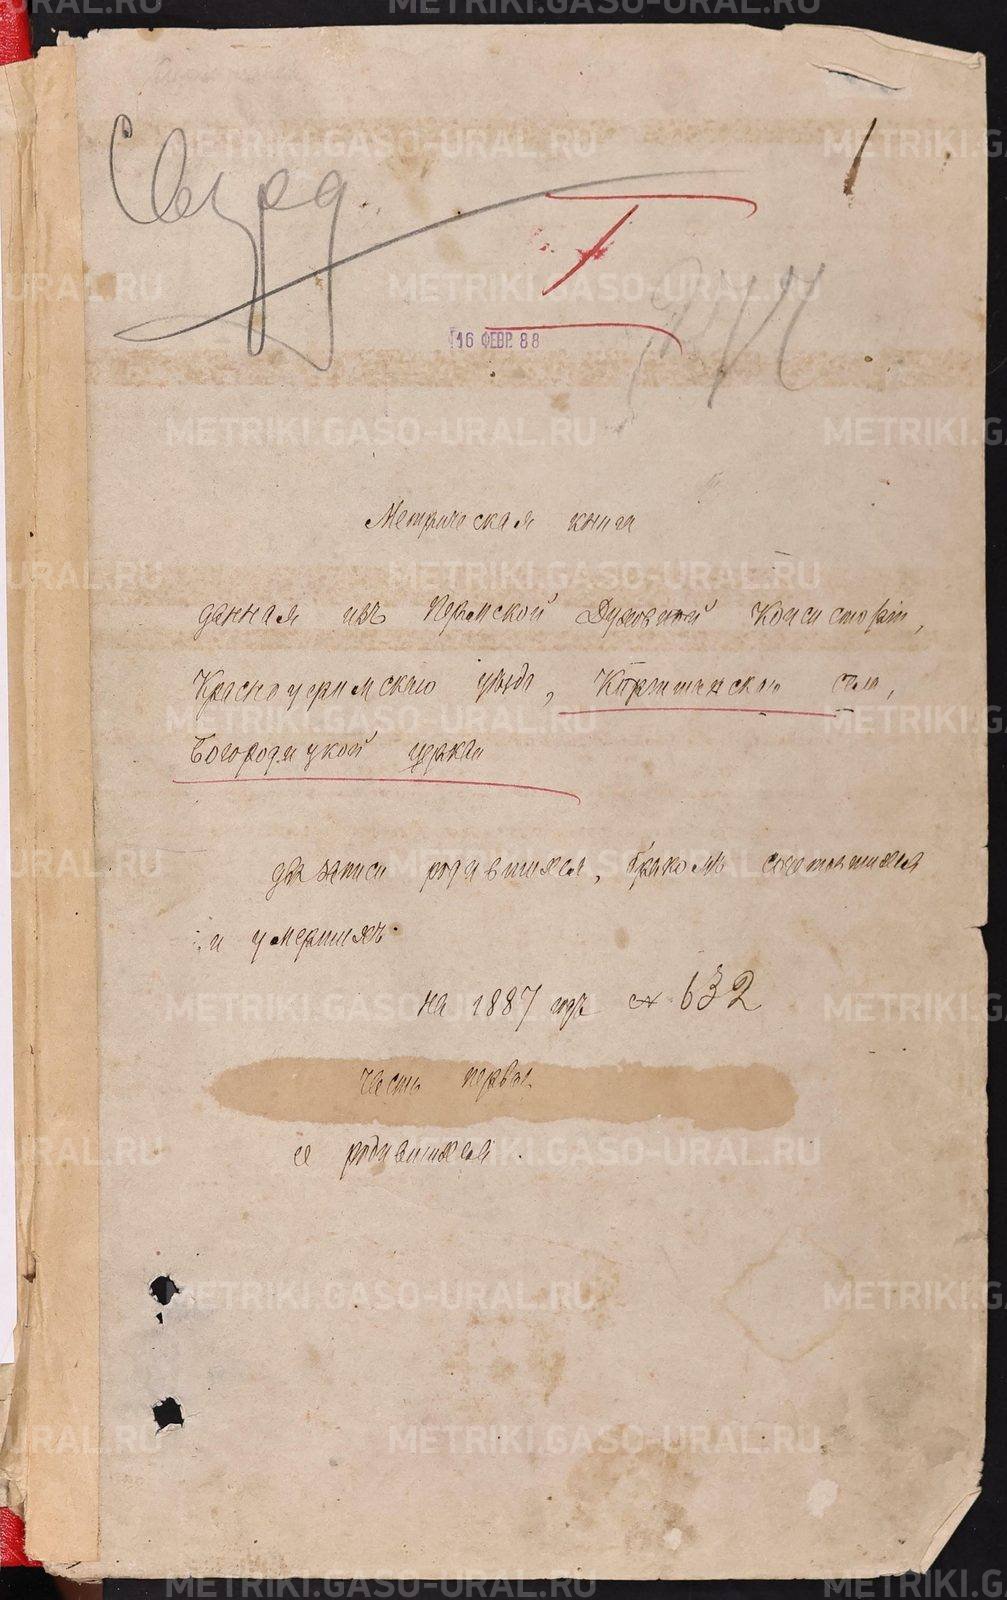 Свурд
1
I
16 ФЕВР. 88
Метрическая книга
данная изъ Пермской Духовной Консисторіи,
Красноуфимскаго уѣзда, Киргишанскаго села,
Богородицкой церкви
для записи родившихся, бракомъ сочетавшихся
и умершихъ.
на 1887 годъ № 632
Часть первая
о родившихся.
METRIKI.GASO-URAL.RU